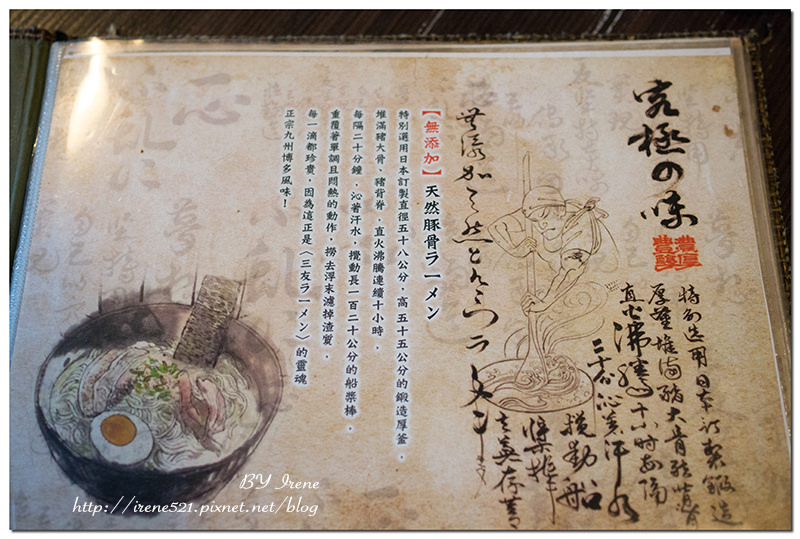 究極の味
特別選用日本訂製鍛造
厚釜堆滿豬大骨豬背脊
直火沸騰十小時每隔
二十分沁著汗水
攪動船
槳棒
無添加天然とんこつラーメン
【無添加】天然豚骨ラーメン
特別選用日本訂製直徑五十八公分，高五十五公分的鍛造厚釜，
堆滿豬大骨、豬背脊，直火沸騰連續十小時，
每隔二十分鐘，沁著汗水，攪動長一百二十公分的船槳棒，
重覆著單調且悶熱的動作，撈去浮末濾掉渣質，
每一滴都珍貴，因為這正是〈三友ラーメン〉的靈魂
正宗九州博多風味！
BY Irene
http://irene521.pixnet.net/blog